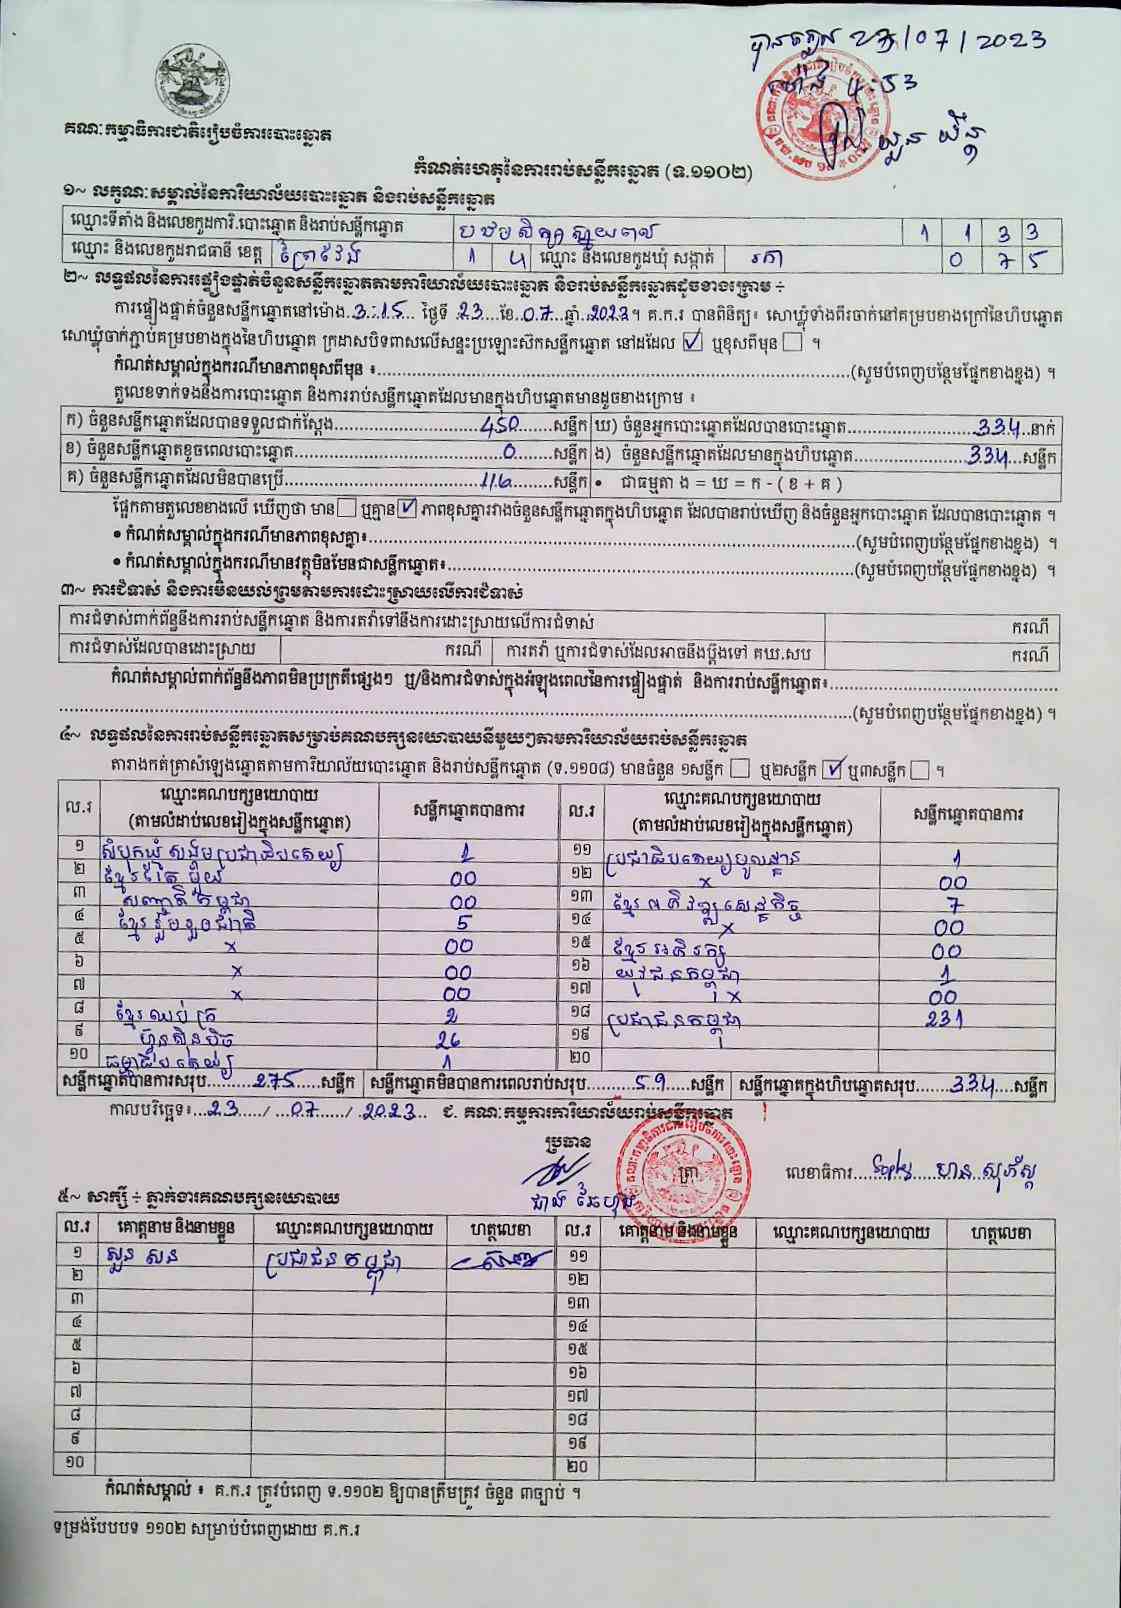 បានឃើញ ២៣/07/2023
ម៉ោង 4:53
យួន ប៊ិន្នី
គណៈកម្មាធិការជាតិរៀបចំការបោះឆ្នោត
កំណត់ហេតុនៃការរាប់សន្លឹកឆ្នោត (ទ.១១០២)
១~ លក្ខណៈសម្គាល់នៃការិយាល័យបោះឆ្នោត និងរាប់សន្លឹកឆ្នោត
ឈ្មោះទីតាំង និងលេខកូដការិ.បោះឆ្នោត និងរាប់សន្លឹកឆ្នោត បឋមសិក្សាស្វាយពល 1 1 3 3
ឈ្មោះ និងលេខកូដរាជធានី ខេត្ត ព្រៃវែង 1 4 ឈ្មោះ និងលេខកូដឃុំ សង្កាត់ រកា 0 7 5
២~ លទ្ធផលនៃការផ្ទៀងផ្ទាត់ចំនួនសន្លឹកឆ្នោតតាមការិយាល័យបោះឆ្នោត និងរាប់សន្លឹកឆ្នោតដូចខាងក្រោម ÷
ការផ្ទៀងផ្ទាត់ចំនួនសន្លឹកឆ្នោតនៅម៉ោង 3:15 ថ្ងៃទី 23 ខែ 07 ឆ្នាំ 2023។ គ.ក.រ បានពិនិត្យ៖ សោឃ្លុំទាំងពីរចាក់នៅគម្របខាងក្រៅនៃហិបឆ្នោត
សោឃ្លុំចាក់ភ្ជាប់គម្របខាងក្នុងនៃហិបឆ្នោត ក្រដាសបិទពាសលើសន្ទះប្រឡោះស៊កសន្លឹកឆ្នោត នៅដដែល ☑ ឬខុសពីមុន ☐ ។
កំណត់សម្គាល់ក្នុងករណីមានភាពខុសពីមុន ៖ (សូមបំពេញបន្ថែមផ្នែកខាងខ្នង) ។
តួលេខទាក់ទងនឹងការបោះឆ្នោត និងការរាប់សន្លឹកឆ្នោតដែលមានក្នុងហិបឆ្នោតមានដូចខាងក្រោម ៖
ក) ចំនួនសន្លឹកឆ្នោតដែលបានទទួលជាក់ស្តែង 450 សន្លឹក ឃ) ចំនួនអ្នកបោះឆ្នោតដែលបានបោះឆ្នោត 334 នាក់
ខ) ចំនួនសន្លឹកឆ្នោតខូចពេលបោះឆ្នោត 0 សន្លឹក ង) ចំនួនសន្លឹកឆ្នោតដែលមានក្នុងហិបឆ្នោត 334 សន្លឹក
គ) ចំនួនសន្លឹកឆ្នោតដែលមិនបានប្រើ 116 សន្លឹក • ជាធម្មតា ង = ឃ = ក - ( ខ + គ )
ផ្អែកតាមតួលេខខាងលើ ឃើញថា មាន ☐ ឬគ្មាន ☑ ភាពខុសគ្នារវាងចំនួនសន្លឹកឆ្នោតក្នុងហិបឆ្នោត ដែលបានរាប់ឃើញ និងចំនួនអ្នកបោះឆ្នោត ដែលបានបោះឆ្នោត ។
• កំណត់សម្គាល់ក្នុងករណីមានភាពខុសគ្នា៖ (សូមបំពេញបន្ថែមផ្នែកខាងខ្នង) ។
• កំណត់សម្គាល់ក្នុងករណីមានវត្ថុមិនមែនជាសន្លឹកឆ្នោត៖ (សូមបំពេញបន្ថែមផ្នែកខាងខ្នង) ។
៣~ ការជំទាស់ និងការមិនយល់ព្រមតាមការដោះស្រាយលើការជំទាស់
ការជំទាស់ពាក់ព័ន្ធនឹងការរាប់សន្លឹកឆ្នោត និងការតវ៉ាទៅនឹងការដោះស្រាយលើការជំទាស់ ករណី
ការជំទាស់ដែលបានដោះស្រាយ ករណី ការតវ៉ា ឬការជំទាស់ដែលអាចនឹងប្តឹងទៅ គឃ.សប ករណី
កំណត់សម្គាល់ពាក់ព័ន្ធនឹងភាពមិនប្រក្រតីផ្សេងៗ ឬ/និងការជំទាស់ក្នុងអំឡុងពេលនៃការផ្ទៀងផ្ទាត់ និងការរាប់សន្លឹកឆ្នោត៖
(សូមបំពេញបន្ថែមផ្នែកខាងខ្នង) ។
៤~ លទ្ធផលនៃការរាប់សន្លឹកឆ្នោតសម្រាប់គណបក្សនយោបាយនីមួយៗតាមការិយាល័យរាប់សន្លឹកឆ្នោត
តារាងកត់ត្រាសំឡេងឆ្នោតតាមការិយាល័យបោះឆ្នោត និងរាប់សន្លឹកឆ្នោត (ទ.១១០៨) មានចំនួន ១សន្លឹក ☐ ឬ២សន្លឹក ☑ ឬ៣សន្លឹក ☐ ។
ល.រ ឈ្មោះគណបក្សនយោបាយ (តាមលំដាប់លេខរៀងក្នុងសន្លឹកឆ្នោត) សន្លឹកឆ្នោតបានការ ល.រ ឈ្មោះគណបក្សនយោបាយ (តាមលំដាប់លេខរៀងក្នុងសន្លឹកឆ្នោត) សន្លឹកឆ្នោតបានការ
១ សំបុកឃ្មុំសង្គមប្រជាធិបតេយ្យ 1 ១១ ប្រជាធិបតេយ្យមូលដ្ឋាន 1
២ ខ្មែរតែមួយ 00 ១២ x 00
៣ សញ្ជាតិកម្ពុជា 00 ១៣ ខ្មែរអភិវឌ្ឍសេដ្ឋកិច្ច 7
៤ ខ្មែររួបរួមជាតិ 5 ១៤ x 00
៥ x 00 ១៥ ខ្មែរអភិរក្ស 00
៦ x 00 ១៦ យុវជនកម្ពុជា 1
៧ x 00 ១៧ x 00
៨ ខ្មែរឈប់ក្រ 2 ១៨ ប្រជាជនកម្ពុជា 231
៩ ហ៊្វុនស៊ិនប៉ិច 26 ១៩
១០ ធម្មាធិបតេយ្យ 1 ២០
សន្លឹកឆ្នោតបានការសរុប 275 សន្លឹក សន្លឹកឆ្នោតមិនបានការពេលរាប់សរុប 59 សន្លឹក សន្លឹកឆ្នោតក្នុងហិបឆ្នោតសរុប 334 សន្លឹក
កាលបរិច្ឆេទ៖ 23 / 07 / 2023 ជ. គណៈកម្មការការិយាល័យរាប់សន្លឹកឆ្នោត
ប្រធាន
ត្រា
លេខាធិការ ហាន សុភ័ស្ត
ជាង ឆៃហុង
៥~ សាក្សី ÷ ភ្នាក់ងារគណបក្សនយោបាយ
ល.រ គោត្តនាម និងនាមខ្លួន ឈ្មោះគណបក្សនយោបាយ ហត្ថលេខា ល.រ គោត្តនាម និងនាមខ្លួន ឈ្មោះគណបក្សនយោបាយ ហត្ថលេខា
១ សួន សន ប្រជាជនកម្ពុជា ១១
២ ១២
៣ ១៣
៤ ១៤
៥ ១៥
៦ ១៦
៧ ១៧
៨ ១៨
៩ ១៩
១០ ២០
កំណត់សម្គាល់ ៖ គ.ក.រ ត្រូវបំពេញ ទ.១១០២ ឱ្យបានត្រឹមត្រូវ ចំនួន ៣ច្បាប់ ។
ទម្រង់បែបបទ ១១០២ សម្រាប់បំពេញដោយ គ.ក.រ